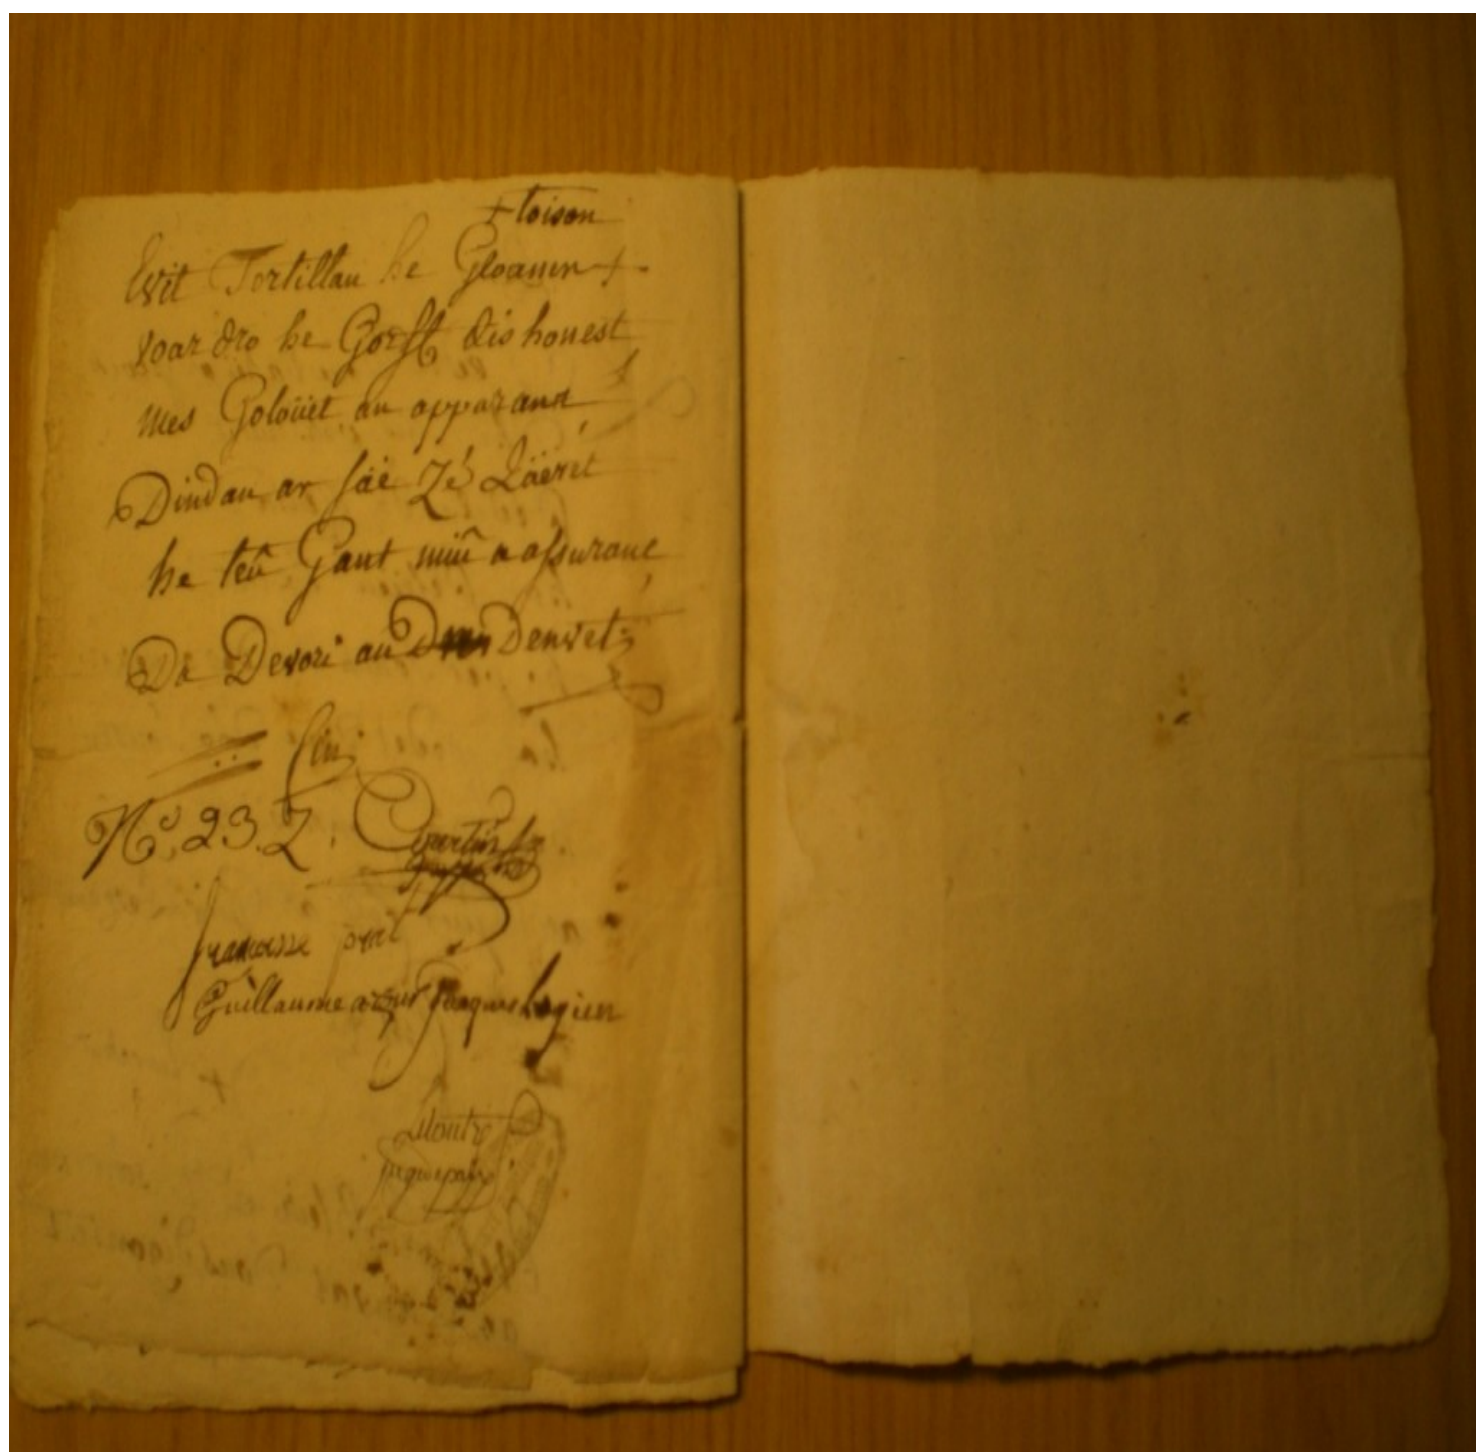 + toison
Evit Tortillau he Gloanen +
voar dro he Gorff dishonest
Mes Goloüet an apparand
Dindan ar saë Zé Läeret
he teû Gant miû a assurance
Da Devori an Denvet
fin
N.º 23. Z. Courtin
francosse
Guillaume Jacques Logien
Montré